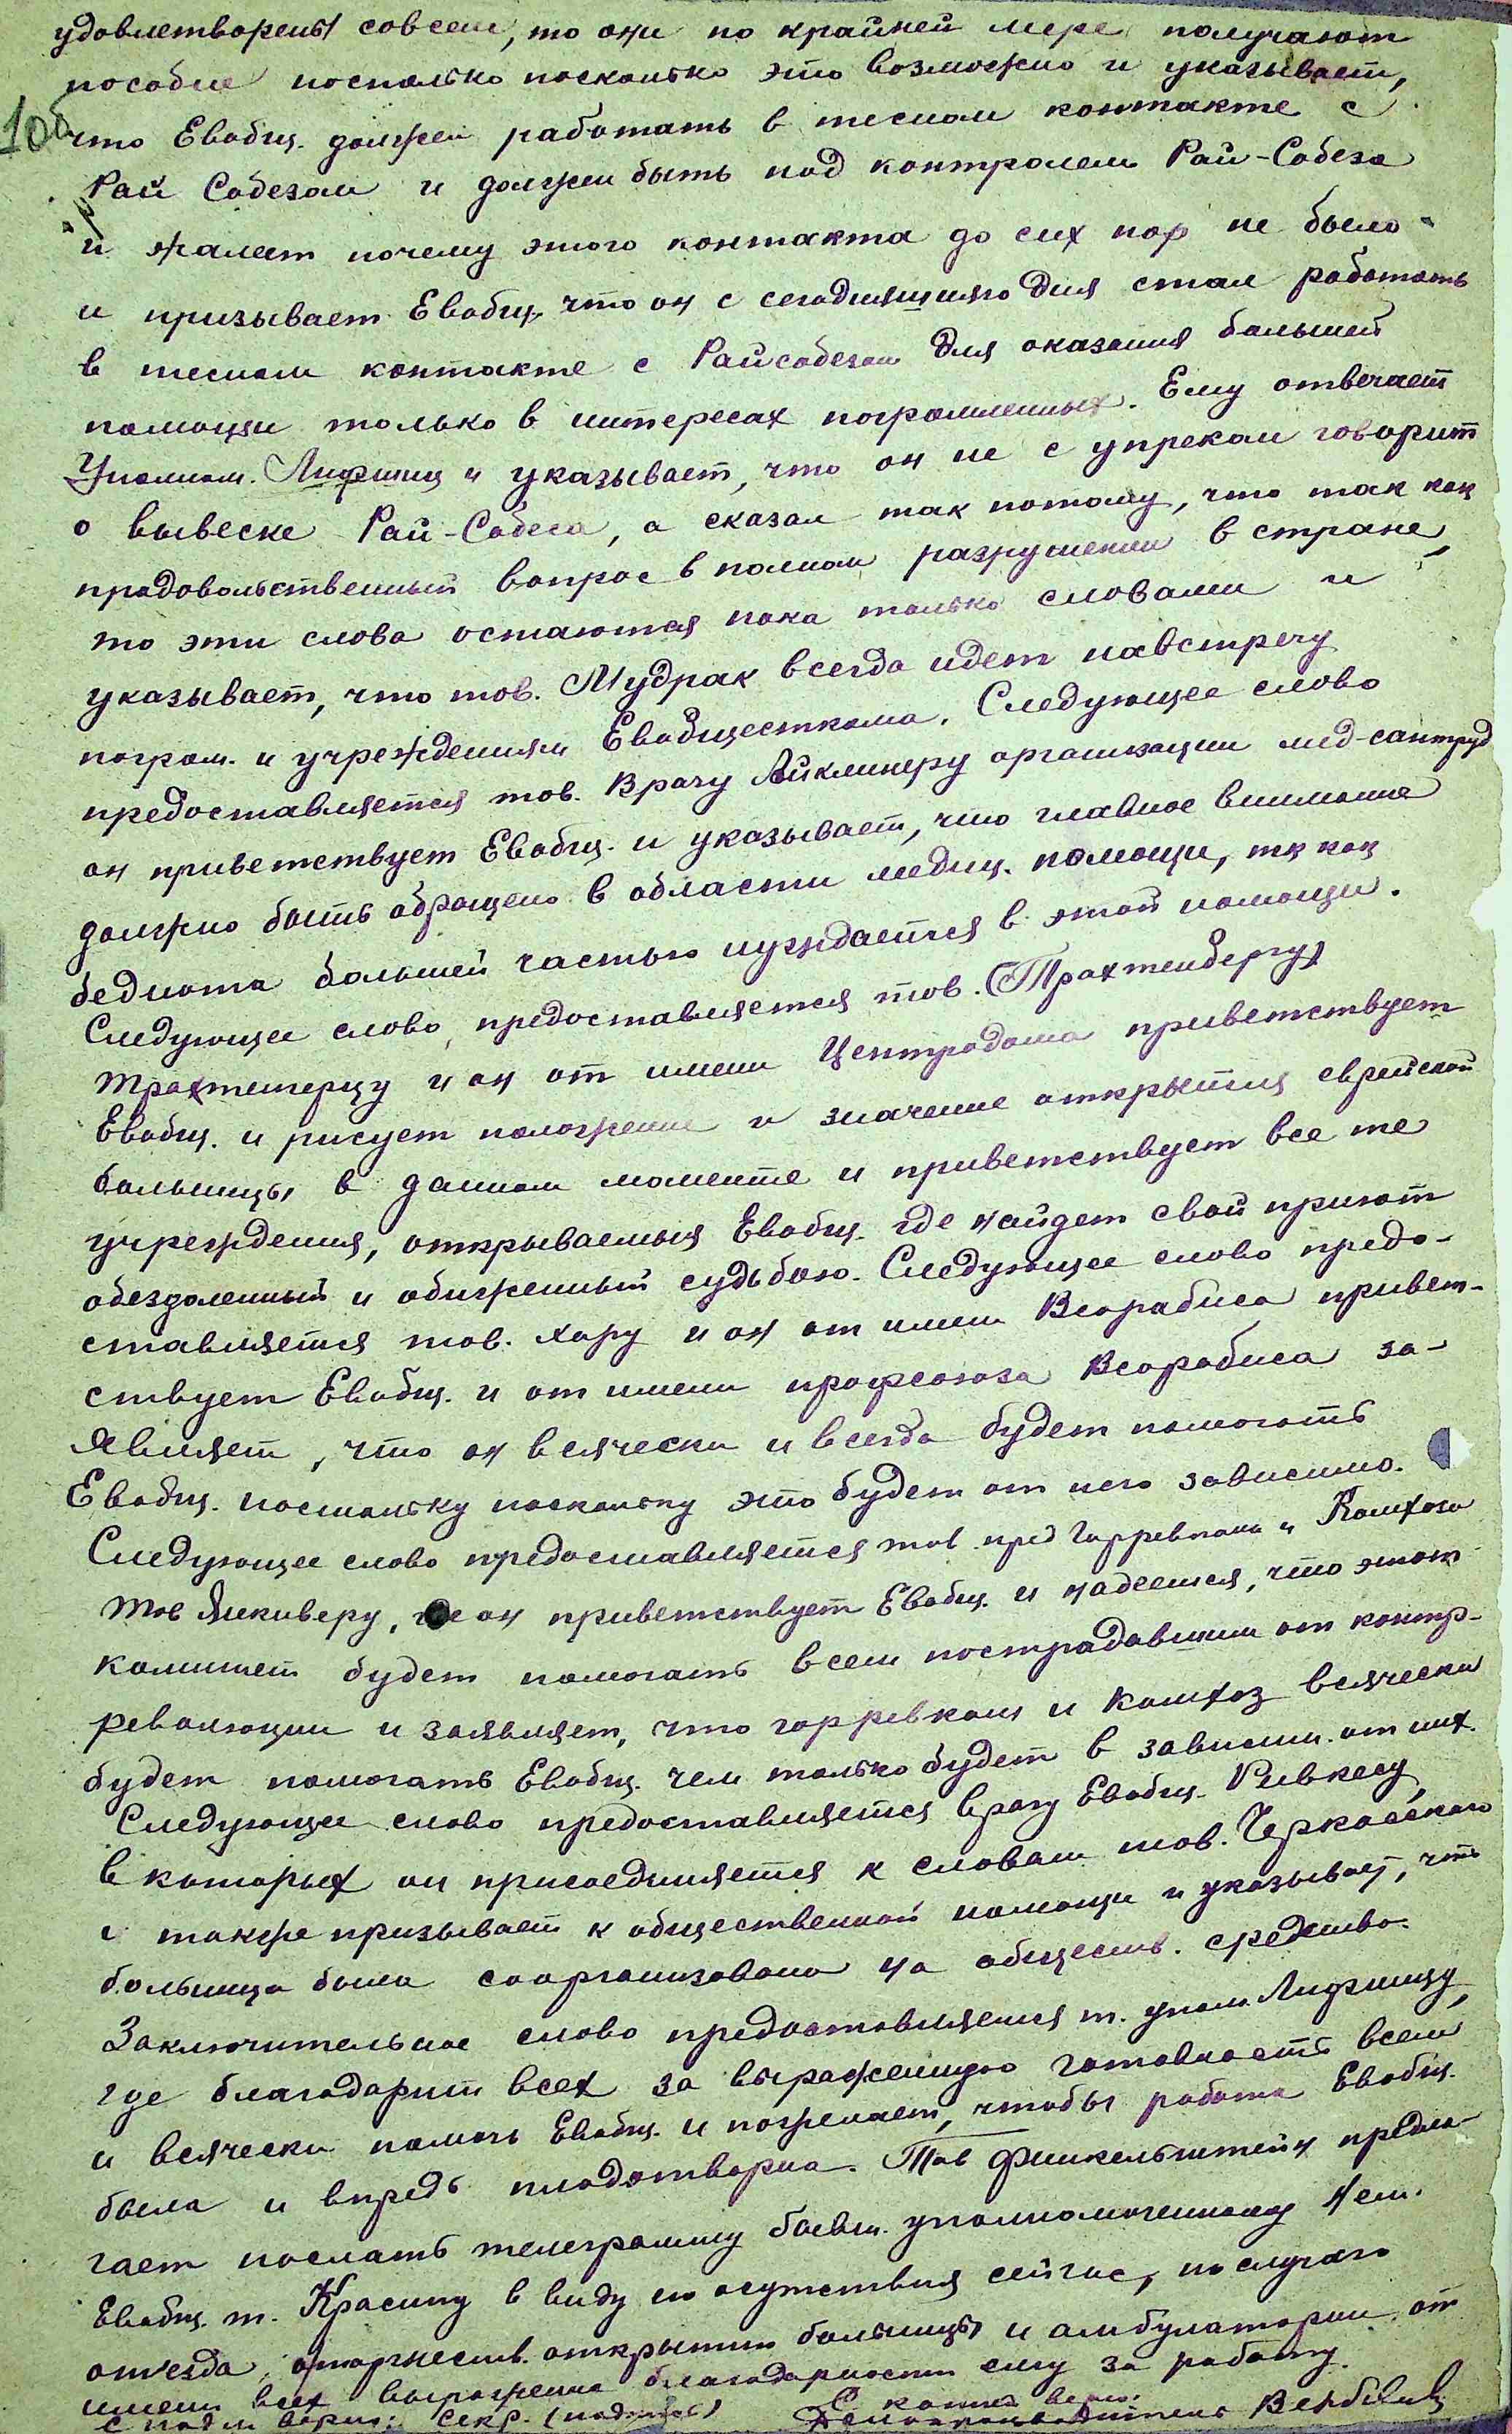 удовлетворены совсем, то они по крайней мере получают
пособие поскольку поскольку это возможно и указывает,
что Евобщ. должен работать в тесном контакте с
Рай Собезом и должен быть под контролем Рай-Собеза
и жалеет почему этого контакта до сих пор не было
и призывает Евобщ. что он с сегодняшняго дня стал работать
в тесном контакте с Райсобезом для оказания большей
помощи только в интересах погромленных. Ему отвечает
Уполном. Лифшиц и указывает, что он не с упреком говорит
о вывеске Рай-Собеса, а сказал так потому, что так как
продовольственный вопрос в полном разрушении в стране,
то эти слова остаются пока только словами и
указывает, что тов. Мудрак всегда идет навстречу
погром. и учреждениям Евобщесткома. Следующее слово
предоставляется тов. Врачу Айклинеру организации мед-сантруд
он приветствует Евобщ. и указывает, что главное внимание
должно быть обращено в области медиц. помощи, тк как
беднота большей частью нуждается в этой помощи.
Следующее слово предоставляется тов. (Трахтенбергу)
и он от имени Центродома приветствует
Евобщ. и рисует положение и значение открытия еврейской
больницы в данном моменте и приветствует все те
учреждения, открываемыя Евобщ. где найдет свой приют
обездоленный и обиженный судьбою. Следующее слово предо-
ставляется тов. Хару и он от имени Всорабиса привет-
ствует Евобщ. и от имени профсоюза Всорабиса за-
являет, что он всячески и всегда будет помогать
Евобщ. постольку поскольку это будет от него зависимо.
Следующее слово предоставляется тов пред Горревкома и Комхоза
тов Янкиверу, где он приветствует Евобщ. и надеется, что этот
комитет будет помогать всем пострадавшим от контр-
революции и заявляет, что горревком и Комхоз всячески
будет помогать Евобщ. чем только будет в зависим. от них.
Следующее слово предоставляется врачу Евобщ. Ривкесу,
в которых он присоединяется к словам тов. Черкасского
и также призывает к общественной помощи и указывает, что
больница была сорганизована на обществ. средство.
Заключительное слово предоставляется т. упол. Лифшицу,
где благодарит всех за выраженную готовность всем
и всячески помочь Евобщ. и пожелает, чтобы работа Евобщ.
была и впредь плодотворна. Тов Финкельштейн предла-
гает послать телеграмму бывш. уполномоченному
Евобщ. т. Красину в виду его отсутствия сейчас, по случаю
от'езда, оторжеств. открытии больницы и амбулатории от
имени всех выражение благодарности ему за работу.
С подл верно: Секр. (подпись)
С копией верно:
Делопроизводитель